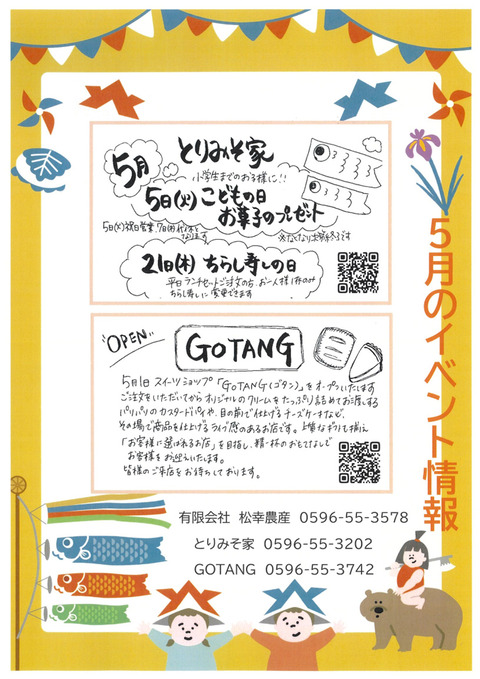 5月のイベント情報
5月
とりみそ家
小学生までのお子様に!!
5日(火)こどもの日
お菓子のプレゼント
5日(火)祝日営業、7日(木)代休と
なります
※なくなり次第終了です
21日(木)ちらし寿しの日
平日ランチセットご注文の方、お一人様1杯のみ
ちらし寿しに変更できます
OPEN
GOTANG
5月1日 スイーツショップ「GOTANG(ゴタン)」をオープンいたします
ご注文をいただいてからオリジナルのクリームをたっぷり詰めてお渡しする
パリパリのカスタードパイや、目の前で仕上げるチーズケーキなど、
その場で商品を仕上げるライブ感のあるお店です。上質なギフトも揃え
「お客様に選ばれるお店」を目指し、精一杯のおもてなしで
お客様をお迎えいたします。
皆様のご来店をお待ちしております。
有限会社 松幸農産 0596-55-3578
とりみそ家 0596-55-3202
GOTANG 0596-55-3742